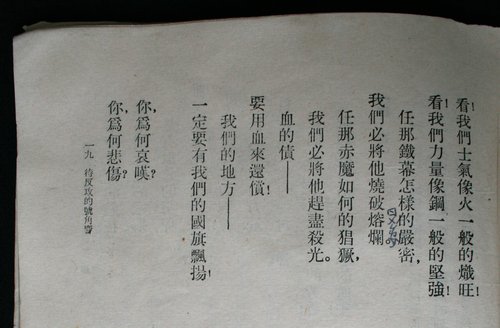 看!我們士氣像火一般的熾旺!
看!我們力量像鋼一般的堅強!
任那鐵幕怎樣的嚴密,
我們必將他燒破熔爛
任那赤魔如何的猖獗,
我們必將他趕盡殺光。
血的債——
要用血來還償!
我們的地方——
一定要有我們的國旗飄揚!
你,爲何哀嘆?
你,爲何悲傷?
一九 待反攻的號角響